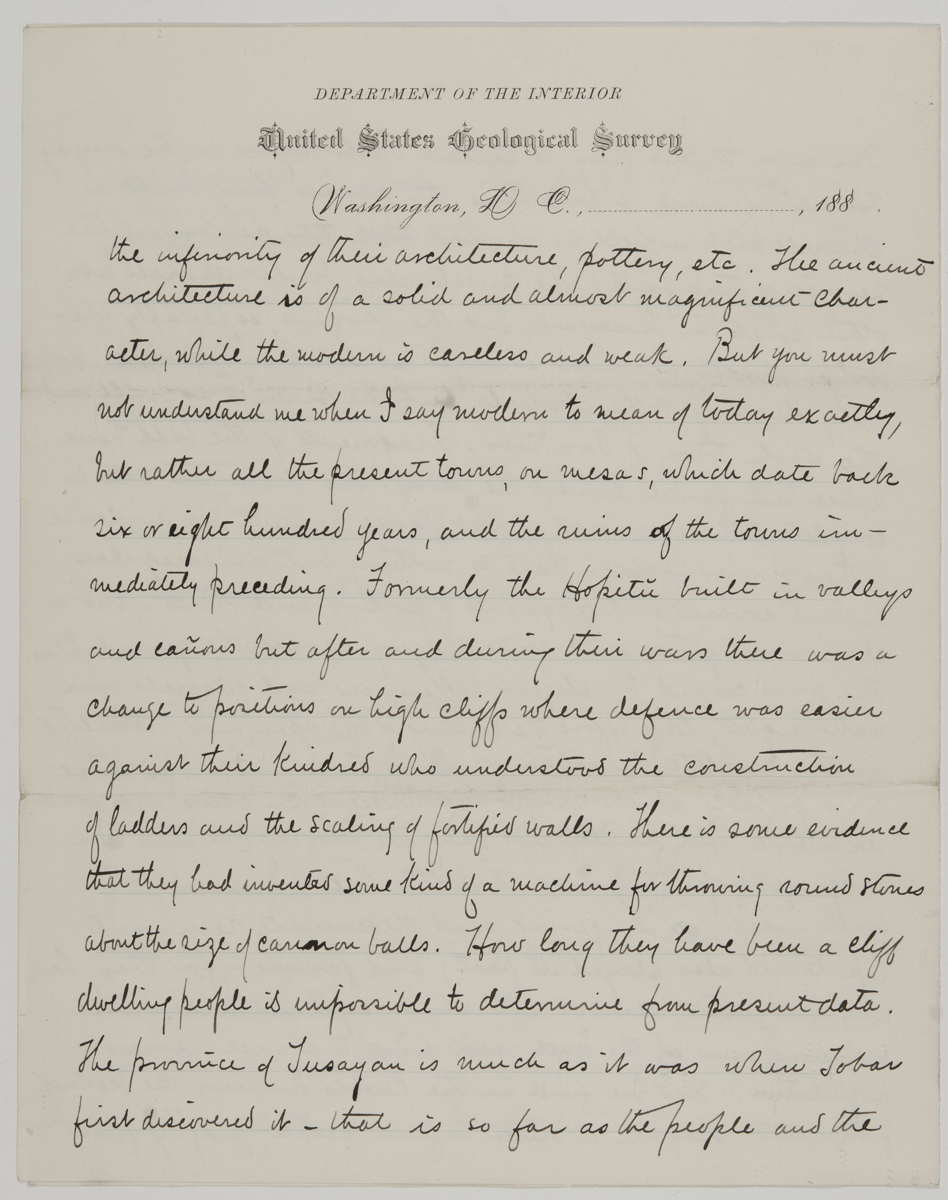 DEPARTMENT OF THE INTERIOR
United States Geological Survey
Washington, D. C., ............................, 188 .
the inferiority of their architecture, pottery, etc. The ancient
architecture is of a solid and almost magnificent char-
acter, while the modern is careless and weak. But you must
not understand me when I say modern to mean of today exactly,
but rather all the present towns, on mesas, which date back
six or eight hundred years, and the ruins of the towns im-
mediately preceding. Formerly the Hopitŭ built in valleys
and cañons but after and during their wars there was a
change to positions on high cliffs where defence was easier
against their kindred who understood the construction
of ladders and the scaling of fortified walls. There is some evidence
that they had invented some kind of a machine for throwing round stones
about the size of cannon balls. How long they have been a cliff
dwelling people is impossible to determine from present data.
The province of Tusayan is much as it was when Tobar
first discovered it – that is so far as the people and the